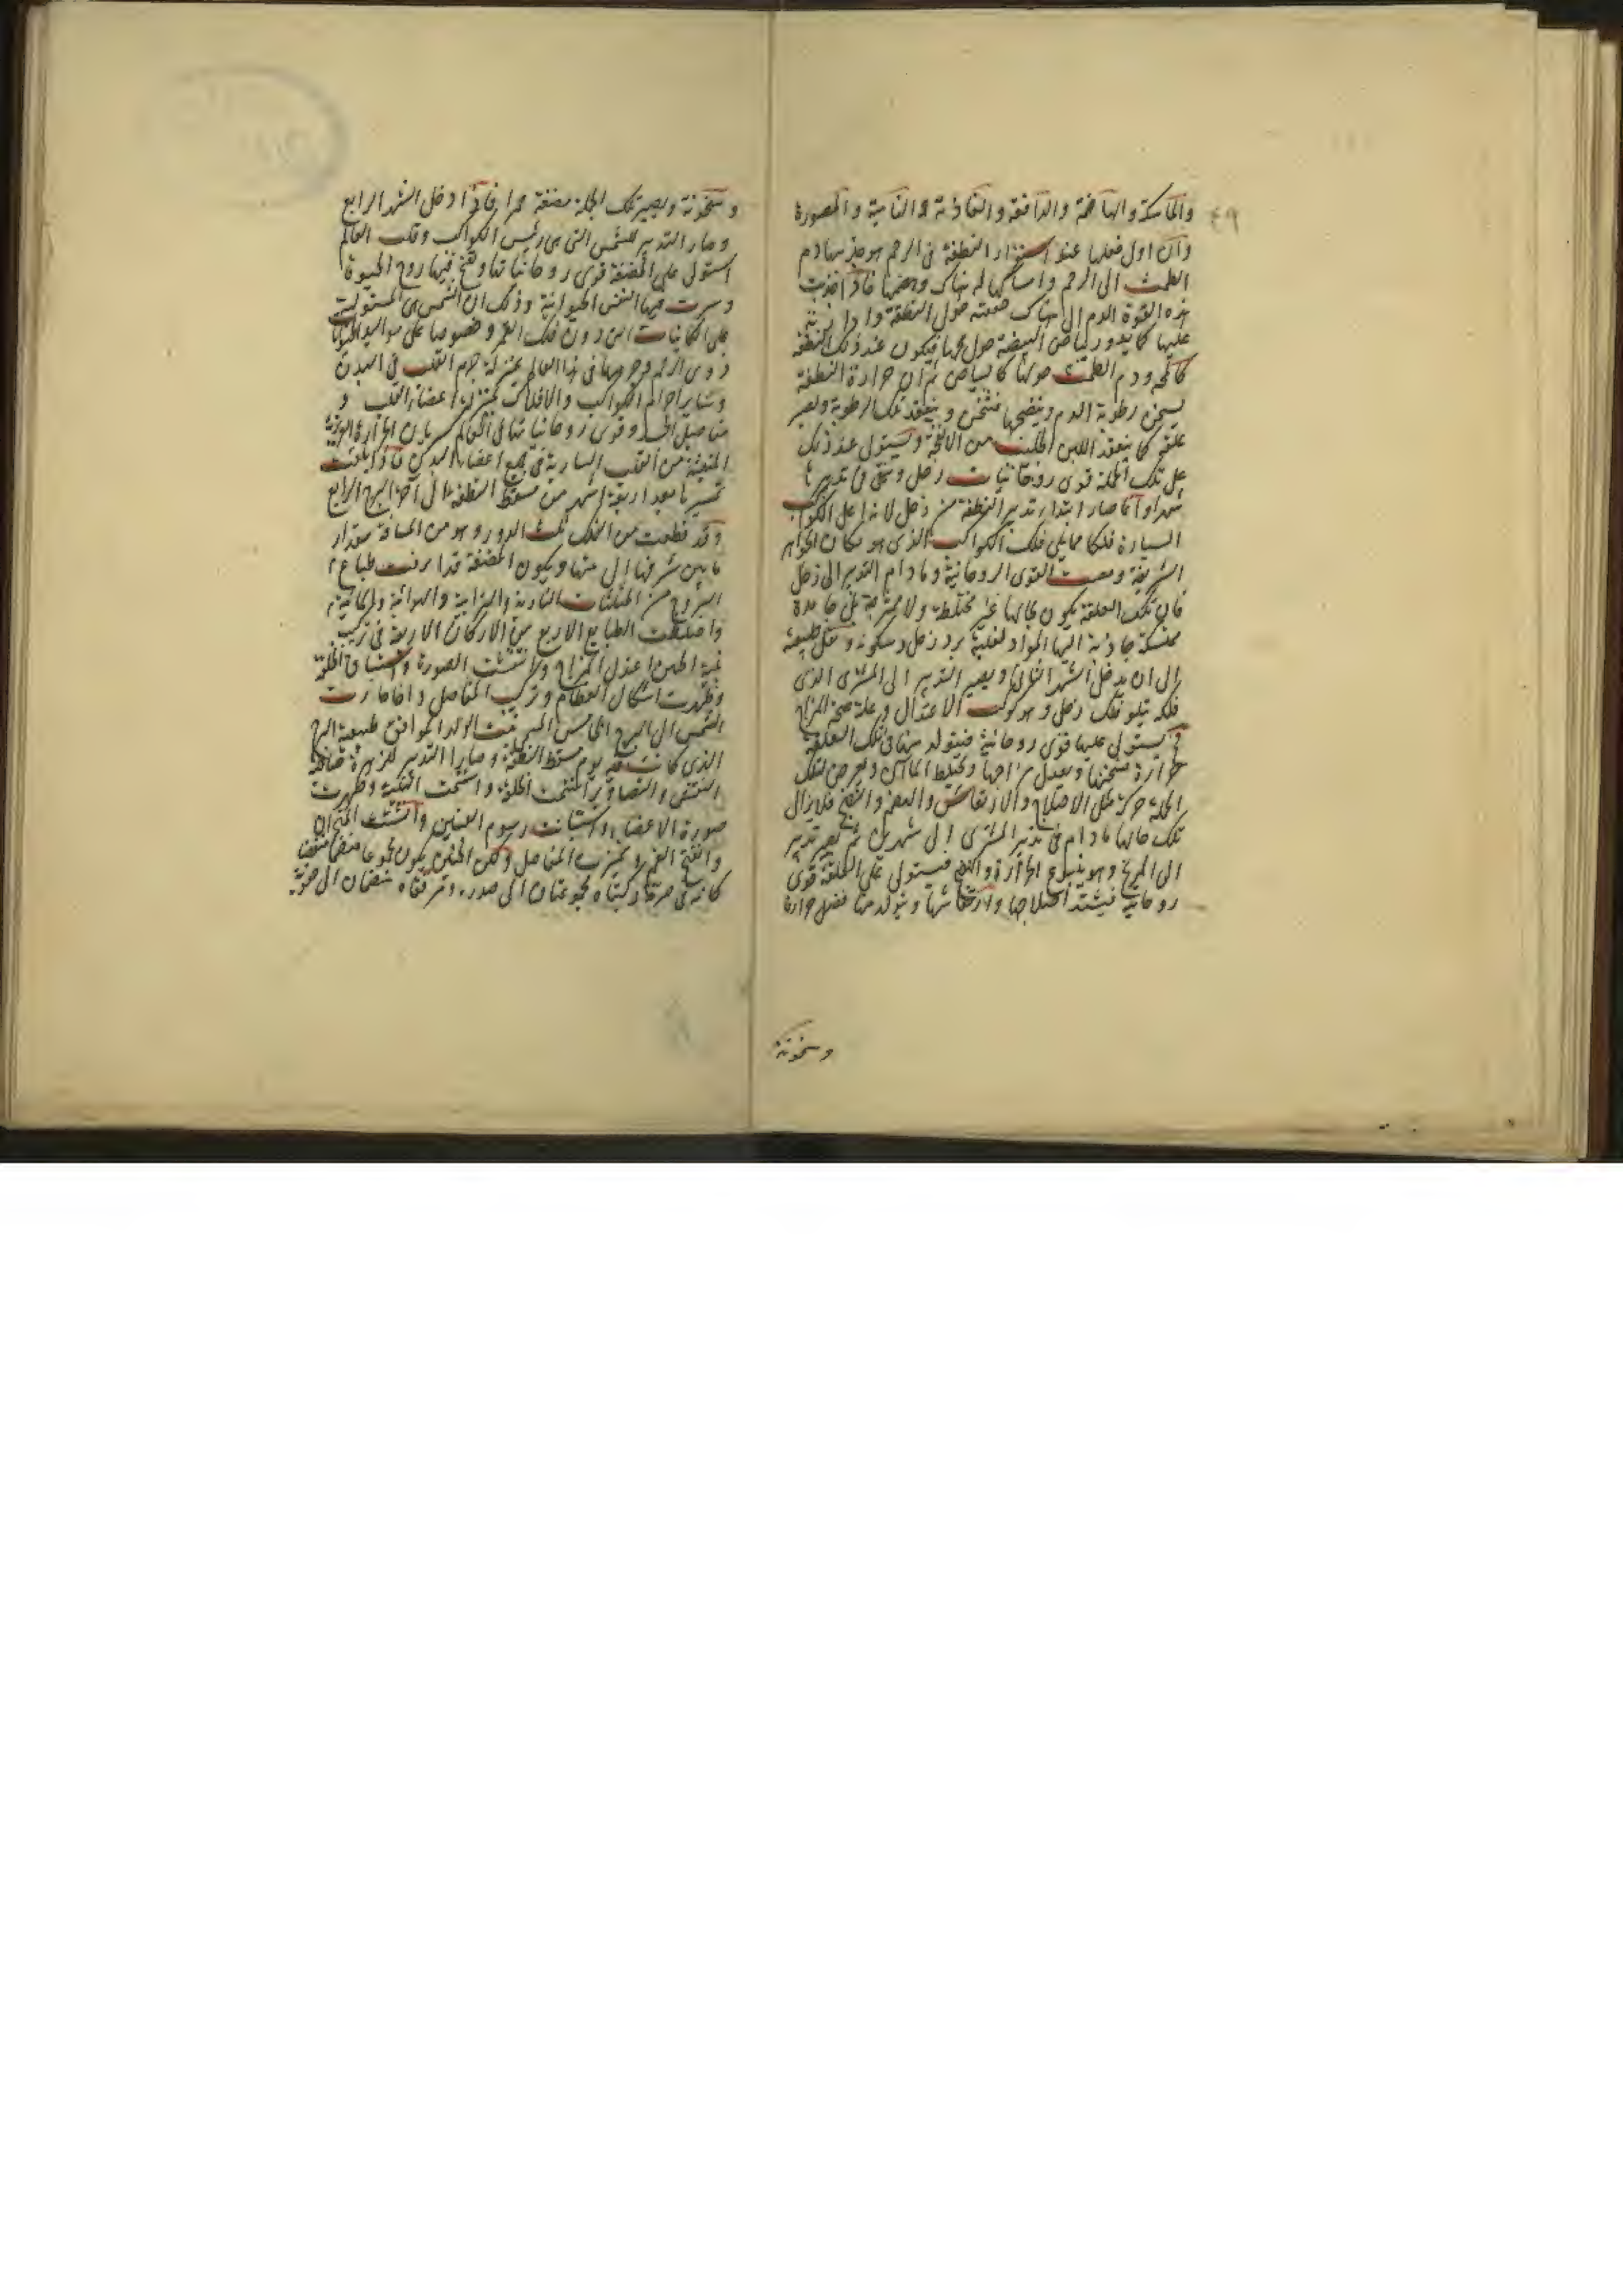 والماسكة والهاضمة والدافعة والغاذية والنامية والمصورة
وان اول فعلها عند استقرار النطفة في الرحم هو جذبها دم
الطمث الى الرحم وامساكها له هناك وهضمها فاذا جذبت
هذه القوة الدم الى هناك حول النطفة وادارته
عليها كما يدور بياض البيضة حول محها فيكون عند ذلك النطفة
كالمحة ودم الطمث حولها كالبياض ثم ان حرارة النطفة
يسخن رطوبة الدم وينضجها فتسخن وينعقد تلك الرطوبة ويصير
علقة كما ينعقد اللبن من الانفحة ويستولى عند ذلك
على تلك الجملة قوى روحانيات زحل ويبقى في تدبيره
شهرا وانما صار ابتداء تدبير النطفة من زحل لانه اعلى الكواكب
السيارة فلكا مما يلي فلك الكواكب الذي هو مكان الجواهر
الشريفة ومعدن القوى الروحانية وما دام التدبير الى زحل
فان تلك العلقة يكون بحالها غير مختلطة ولا ممتزجة بل جامدة
متمسكة جاذبة اليها المواد لغلبة برد زحل وسكونه وثقل طبيعته
الى ان يدخل الشهر الثاني ويصير التدبير الى المشترى الذى
فلكه يتلو فلك زحل وهو كوكب الاعتدال وعلة صحة المزاج
فيستولى عليها قوى روحانية فيتولد منها في تلك العلقة
حرارة فتسخنها ويعدل مزاجها ويختلط الماآن ويعرض لتلك
الجملة حركة مثل الاختلاج والارتعاش والهضم والنضج فلا يزال
تلك حالها ما دام في تدبير المشترى الى شهرين ثم يصير تدبير
الى المريخ وهو ينبوع الحرارة فيستولى على العلقة قوى
روحانية فيشتد اختلاجها وارتعاشها ويتولد منها فضل حرارة
وسخونة
وسخونة ويصير تلك الجملة مضغة حمرا فاذا دخل الشهر الرابع
وصار التدبير للشمس التى هى رئيس الكواكب وقلب العالم
استولى على المضغة قوى روحانياتها ونفخ فيها روح الحيوة
وسرت فيها النفس الحيوانية وذلك ان الشمس هى المستولية
على الكائنات التى دون فلك القمر وخصوصا على مواليد الحيوانات
ذوى الرحم وجرمها في هذا العالم بمنزلة جرم القلب في البدن
وسائر اجرام الكواكب والافلاك بمنزلة اعضاء القلب و
مفاصل الجسد وقوى روحانياتها في العالم كسريان الحرارة الغريزية
المنبعثة من القلب السارية في جميع اعضاء البدن فاذا بلغت
تسييرها بعد اربعة اشهر من مسقط النطفة الى آخر البرج الرابع
وقد قطعت من الفلك ثلث الدور وهو من المسافة مقدار
ما بين شرفها الى بيتها ويكون المضغة قد استوفت طبايع
البروج من المثلثات النارية والترابية والهوائية والمائية
واختلطت الطبايع الاربع من الاركان الاربعة في تركيب
بنية الجنين اعتدل المزاج وانتقشت الصورة الخلقة
وظهرت اشكال العظام وتركيب المفاصل واذا صارت
الشمس الى البرج الخامس من بيت الولد الموافق طبيعة البرج
الذى كانت فيه يوم مسقط النطفة وصار التدبير للزهرة صاحبة
النقش والتصاوير استتمت الخلقة واستكملت البنية وظهرت
صورة الاعضاء واستبانت رسوم العينين وانشق المنخران
وانفتح الفم وتميزت المفاصل ولكن الجنين يكون مجموعا منقبضا
كانه في صرة ركبتاه مجموعتان الى صدره ومرفقاه منضمان الى حقويه